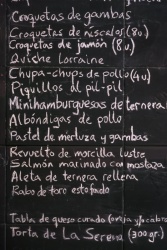 Croquetas de gambas
Croquetas de niscalos (8u)
Croquetas de jamón (8u)
Quiche Lorraine
Chupa-chups de pollo (4u)
Piquillos al pil-pil
Minihamburguesas de ternera
Albóndigas de pollo
Pastel de merluza y gambas
Revuelto de morcilla lustre
Salmón marinado con mostaza
Aleta de ternera rellena
Rabo de toro estofado
Tabla de queso curado (oveja y/o cabra)
Torta de La Serena (300gr.)